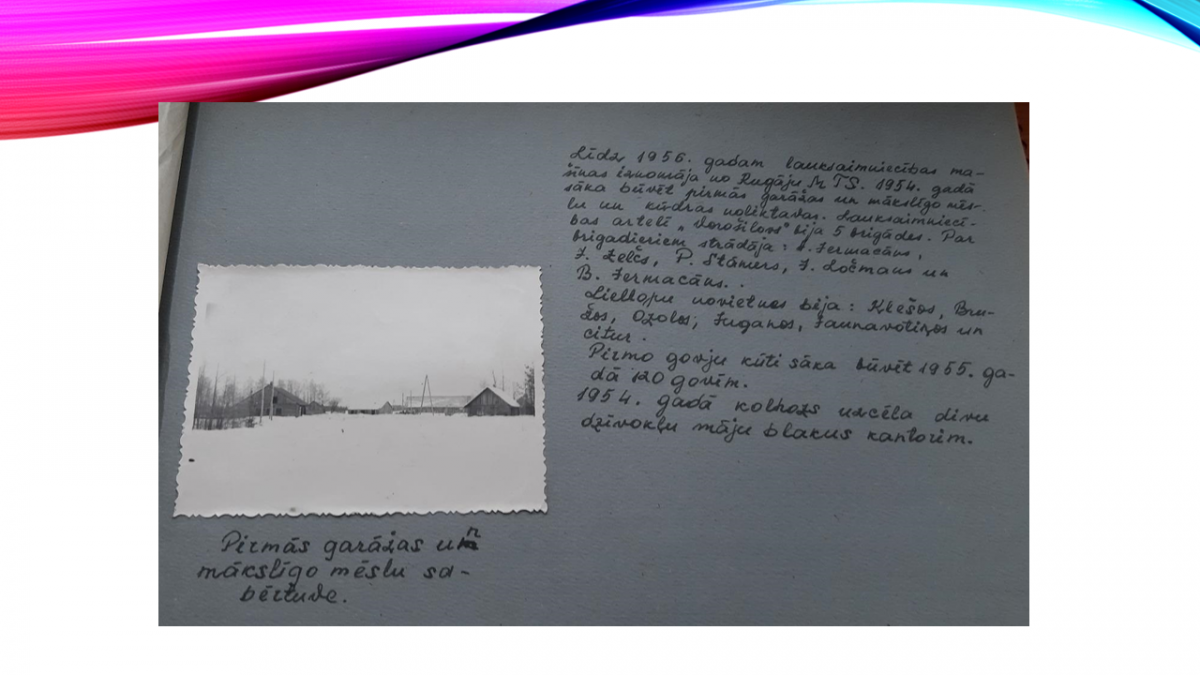 Līdz 1956. gadam lauksaimniecības ma-
šīnas iznomāja no Rugāju MTS. 1954. gadā
sāka būvēt pirmās garāžas un mākslīgo mēs-
lu un kūdras noliktavas. Lauksaimniecī-
bas artelī „Vorošilovs" bija 5 brigādes. Par
brigadieriem strādāja : Jermacāns,
J. Zelčs, P. Stāmers, J. Ločmans un
B. Jermacāns.
Liellopu novietnes bija : Klešos, Bru-
žos, Ozolos, Juganos, Jaunavotiņos un
citur.
Pirmo govju kūti sāka būvēt 1955. ga-
dā 120 govīm.
1954. gadā kolhozs uzcēla divu
dzīvokļu māju blakus kantorim.
Pirmās garāžas un
mākslīgo mēslu sa-
bērtuve.